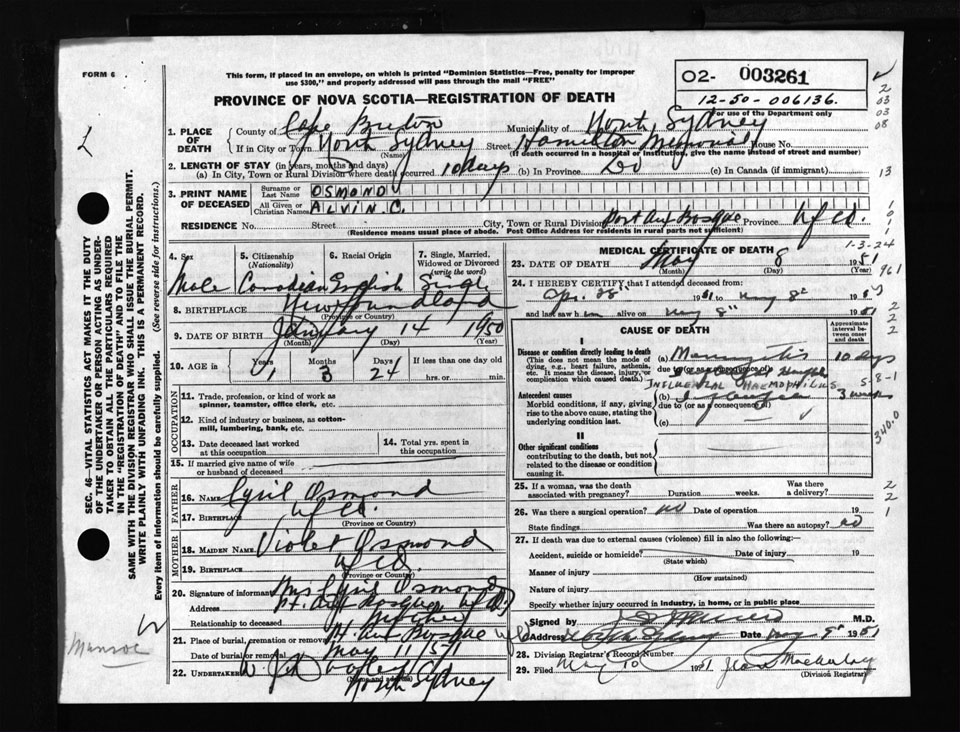 FORM 6
This form, if placed in an envelope, on which is printed "Dominion Statistics—Free, penalty for improper
use $300," and properly addressed will pass through the mail "FREE"
PROVINCE OF NOVA SCOTIA—REGISTRATION OF DEATH
02- 003261
12-50-006136.
For use of the Department only
2
03
03
08
13
1. PLACE OF DEATH
County of Cape Breton Municipality of North Sydney
If in City or Town North Sydney Street Hamilton Memorial House No.
(Name) (If death occurred in a hospital or institution, give the name instead of street and number)
2. LENGTH OF STAY (in years, months and days)
(a) In City, Town or Rural Division where death occurred 10 days (b) In Province Do (c) In Canada (if immigrant)
3. PRINT NAME OF DECEASED
Surname or Last Name OSMOND
All Given or Christian Names ALVIN. C.
RESIDENCE No. Street City, Town or Rural Division Port Aux Basque Province Nfld.
(Residence means usual place of abode. Post Office Address for residents in rural parts not sufficient)
4. Sex
Male
5. Citizenship (Nationality)
Canadian
6. Racial Origin
English
7. Single, Married, Widowed or Divorced (write the word)
Single
8. BIRTHPLACE Newfoundland
(Province or Country)
9. DATE OF BIRTH January 14 1950
(Month) (Day) (Year)
10. AGE in Years Months Days If less than one day old
1 3 24 hrs. or min.
OCCUPATION
11. Trade, profession, or kind of work as spinner, teamster, office clerk, etc.
12. Kind of industry or business, as cotton-mill, lumbering, bank, etc.
13. Date deceased last worked at this occupation
14. Total yrs. spent in this occupation
15. If married give name of wife or husband of deceased
FATHER
16. Name Cyril Osmond
17. Birthplace Nfld.
(Province or Country)
MOTHER
18. Maiden Name Violet Osmond
19. Birthplace Nfld.
(Province or Country)
20. Signature of informant Mrs Cyril Osmond
Address Pt. Aux Basque Nfld
Relationship to deceased Mother
21. Place of burial, cremation or removal Pt. Aux Basque Nfld
Date of burial or removal May 11/51
22. UNDERTAKER
(Name and address)
North Sydney
MEDICAL CERTIFICATE OF DEATH
1-3-24
23. DATE OF DEATH May 8 1951
(Month) (Day) (Year)
961
24. I HEREBY CERTIFY that I attended deceased from:
Apr. 28" 1951 to May 8" 1951
and last saw him alive on May 8" 1951
CAUSE OF DEATH
Approximate interval between onset and death
I
Disease or condition directly leading to death
(This does not mean the mode of dying, e.g., heart failure, asthenia, etc. It means the disease, injury, or complication which caused death.)
(a) Meningitis 10 days
due to (or as a consequence of)
INFLUENZAL HAEMOPHILUS
5-8-1
Antecedent causes
Morbid conditions, if any, giving rise to the above cause, stating the underlying condition last.
(b) Influenza 3 weeks
due to (or as a consequence of)
(c)
340.0
II
Other significant conditions
contributing to the death, but not related to the disease or condition causing it.
25. If a woman, was the death associated with pregnancy? Duration weeks. Was there a delivery?
26. Was there a surgical operation? no Date of operation 19
State findings Was there an autopsy? no
27. If death was due to external causes (violence) fill in also the following:—
Accident, suicide or homicide? Date of injury 19
(State which)
Manner of injury
(How sustained)
Nature of injury
Specify whether injury occurred in industry, in home, or in public place
Signed by M.D.
Address North Sydney Date May 9" 1951
28. Division Registrar's Record Number
29. Filed May 10 1951 Jean MacAulay
(Division Registrar)
SEC. 46—VITAL STATISTICS ACT MAKES IT THE DUTY
OF THE UNDERTAKER OR PERSON ACTING AS UNDER-
TAKER TO OBTAIN ALL THE PARTICULARS REQUIRED
IN THE "REGISTRATION OF DEATH" AND TO FILE THE
SAME WITH THE DIVISION REGISTRAR WHO SHALL ISSUE THE BURIAL PERMIT.
WRITE PLAINLY WITH UNFADING INK. THIS IS A PERMANENT RECORD.
Every item of information should be carefully supplied. (See reverse side for instructions.)
Munroe